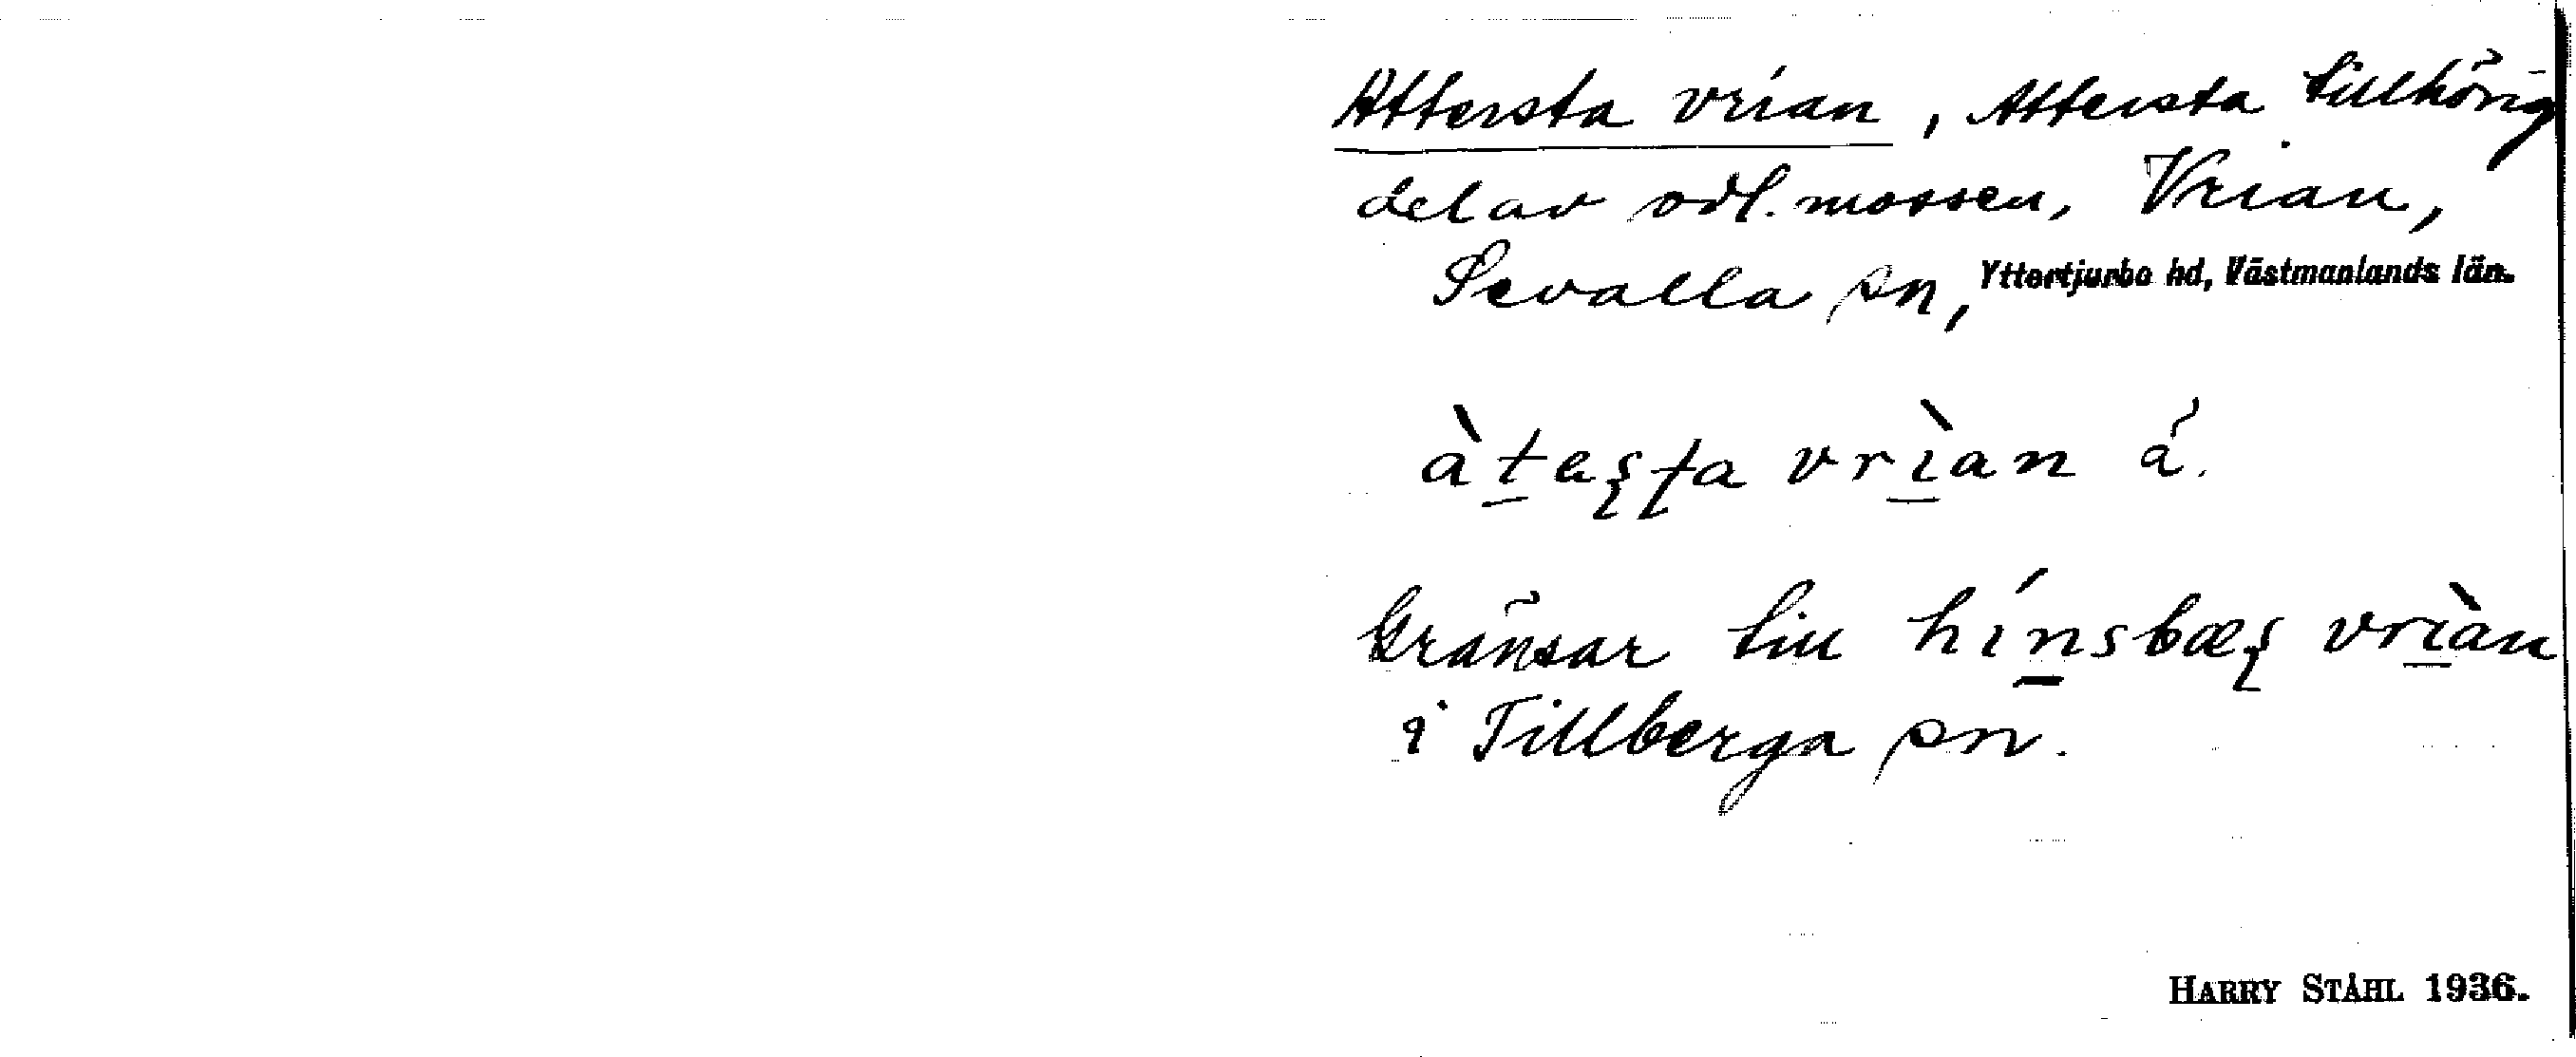 Attersta vrían, Attersta tillhörig
del av odl. mossen, Vrian,
Sevalla sn, Yttertjurbo hd, Västmanlands län.
àt̲aʂʈa vrì̲an á.
Gränsar till hín̲sbæʂ vrì̲an
i Tillberga sn.
HARRY STÅHL 1936.